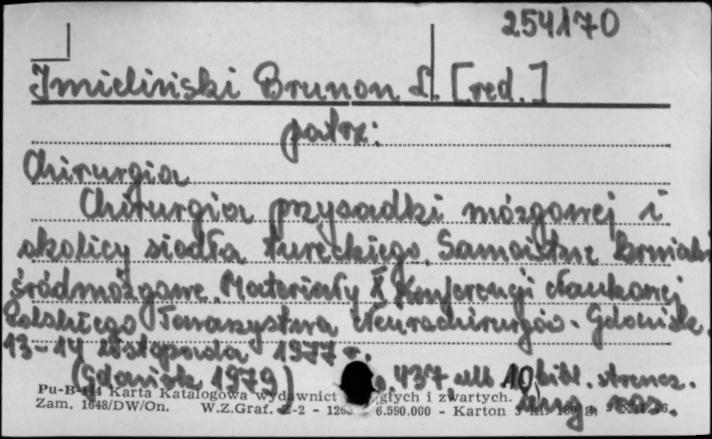 254170
Imieliński Brunon L. [red.]
patrz:
Chirurgia
Chirurgia przysadki mózgowej i
okolicy siodła tureckiego. Samoistne krwiaki
śródmózgowe. Materiały X Konferencji Naukowej
Polskiego Towarzystwa Neurochirurgów. Gdańsk
13-14 listopada 1977 r.
(Gdańsk 1979) s. 437 nlb 10, bibl. streszcz.
ang ros.
Pu-B- Karta Katalogowa wydawnict głych i zwartych.
Zam. 1648/DW/On. W.Z.Graf. Z-2 - 6.590.000 - Karton